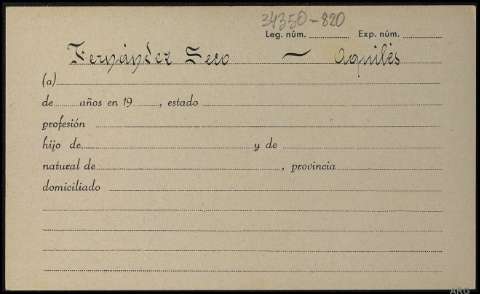 34350-820
Leg. núm. Exp. núm.
Fernández Seco — Aquiles
(a)
de años en 19 , estado
profesión
hijo de y de
natural de , provincia
domiciliado
ARG